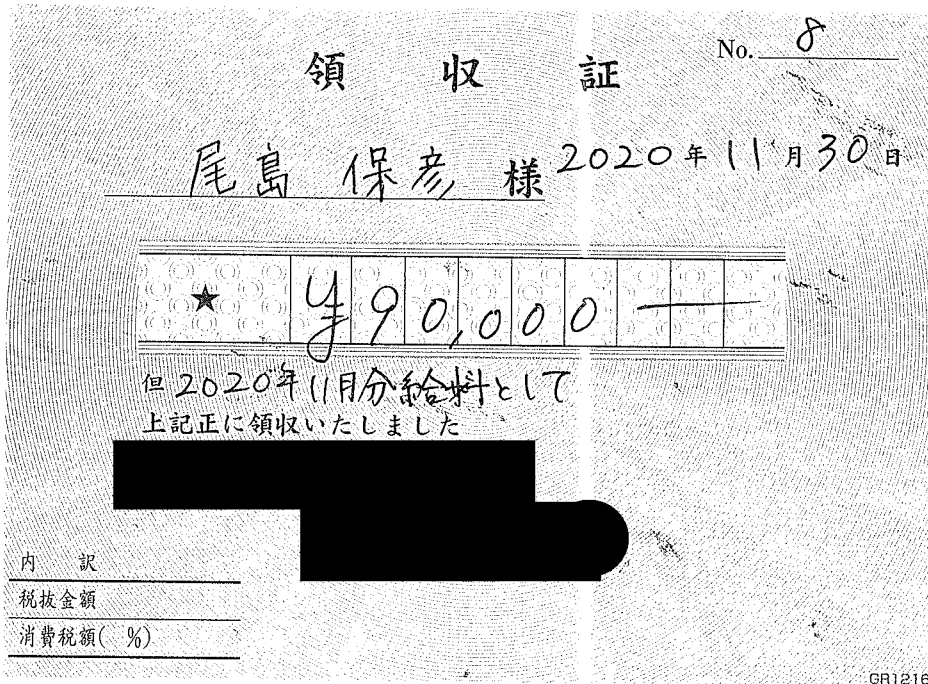 No. 8
領収証
尾島 保彦 様 2020年11月30日
★ ¥90,000 —
但 2020年11月分給料として
上記正に領収いたしました
内 訳
税抜金額
消費税額( %)
GR1216